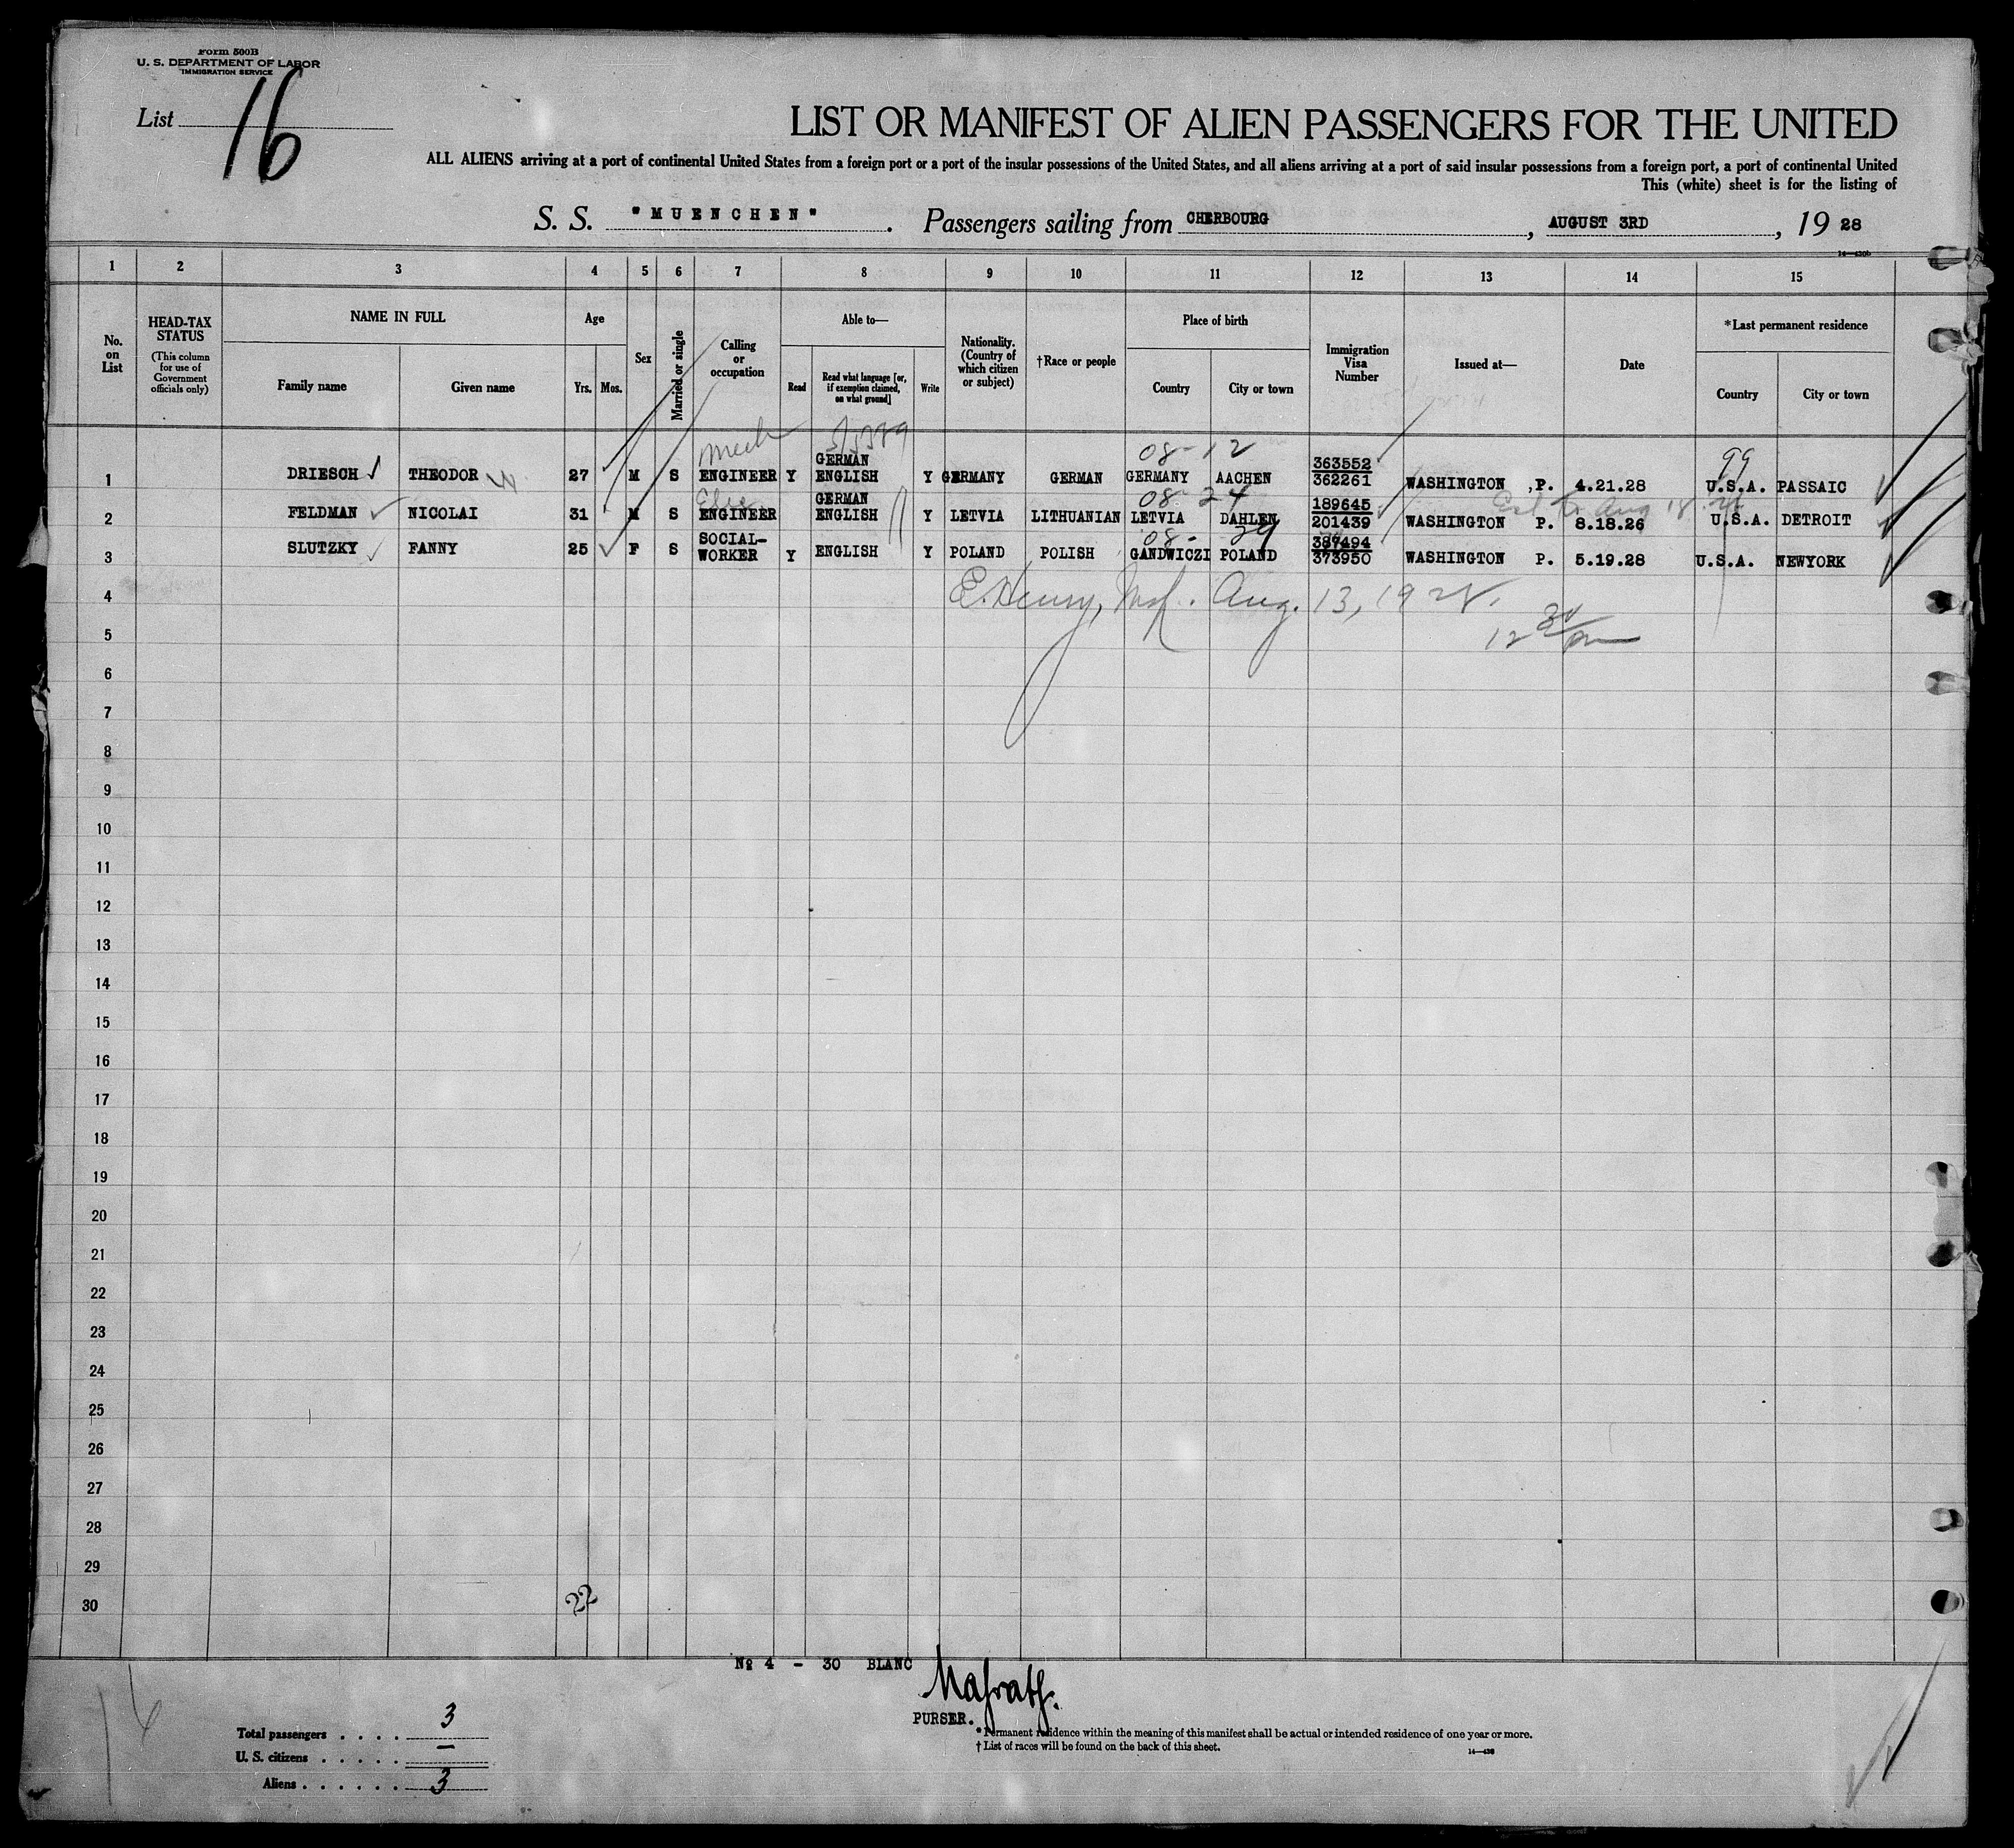 Form 500B
U. S. DEPARTMENT OF LABOR
IMMIGRATION SERVICE
List 16
LIST OR MANIFEST OF ALIEN PASSENGERS FOR THE UNITED
ALL ALIENS arriving at a port of continental United States from a foreign port or a port of the insular possessions of the United States, and all aliens arriving at a port of said insular possessions from a foreign port, a port of continental United
This (white) sheet is for the listing of
S. S. "MUENCHEN". Passengers sailing from CHERBOURG, AUGUST 3RD, 1928
1 2 3 4 5 6 7 8 9 10 11 12 13 14 15
No. on List
HEAD-TAX STATUS
(This column for use of Government officials only)
NAME IN FULL
Family name
Given name
Age
Yrs.
Mos.
Sex
Married or single
Calling or occupation
Able to—
Read
Read what language [or, if exemption claimed, on what ground]
Write
Nationality. (Country of which citizen or subject)
†Race or people
Place of birth
Country
City or town
Immigration Visa Number
Issued at—
Date
*Last permanent residence
Country
City or town
Mech
08-12
99
1 DRIESCH THEODOR 27 M S ENGINEER Y GERMAN ENGLISH Y GERMANY GERMAN GERMANY AACHEN 363552 362261 WASHINGTON ,P. 4.21.28 U.S.A. PASSAIC
Elec
08-24
2 FELDMAN NICOLAI 31 M S ENGINEER GERMAN ENGLISH Y LETVIA LITHUANIAN LETVIA DAHLEN 189645 201439 WASHINGTON P. 8.18.26 U.S.A. DETROIT
08-29
3 SLUTZKY FANNY 25 F S SOCIAL-WORKER Y ENGLISH Y POLAND POLISH GANDWICZI POLAND 387494 373950 WASHINGTON P. 5.19.28 U.S.A. NEWYORK
4 E. Henry, Aug. 13, 1928.
5 12 30 pm
6
7
8
9
10
11
12
13
14
15
16
17
18
19
20
21
22
23
24
25
26
27
28
29
30 22
№ 4 - 30 BLANC
PURSER.
Total passengers . . . . 3
U. S. citizens . . . . . —
Aliens . . . . . . 3
* Permanent residence within the meaning of this manifest shall be actual or intended residence of one year or more.
† List of races will be found on the back of this sheet.